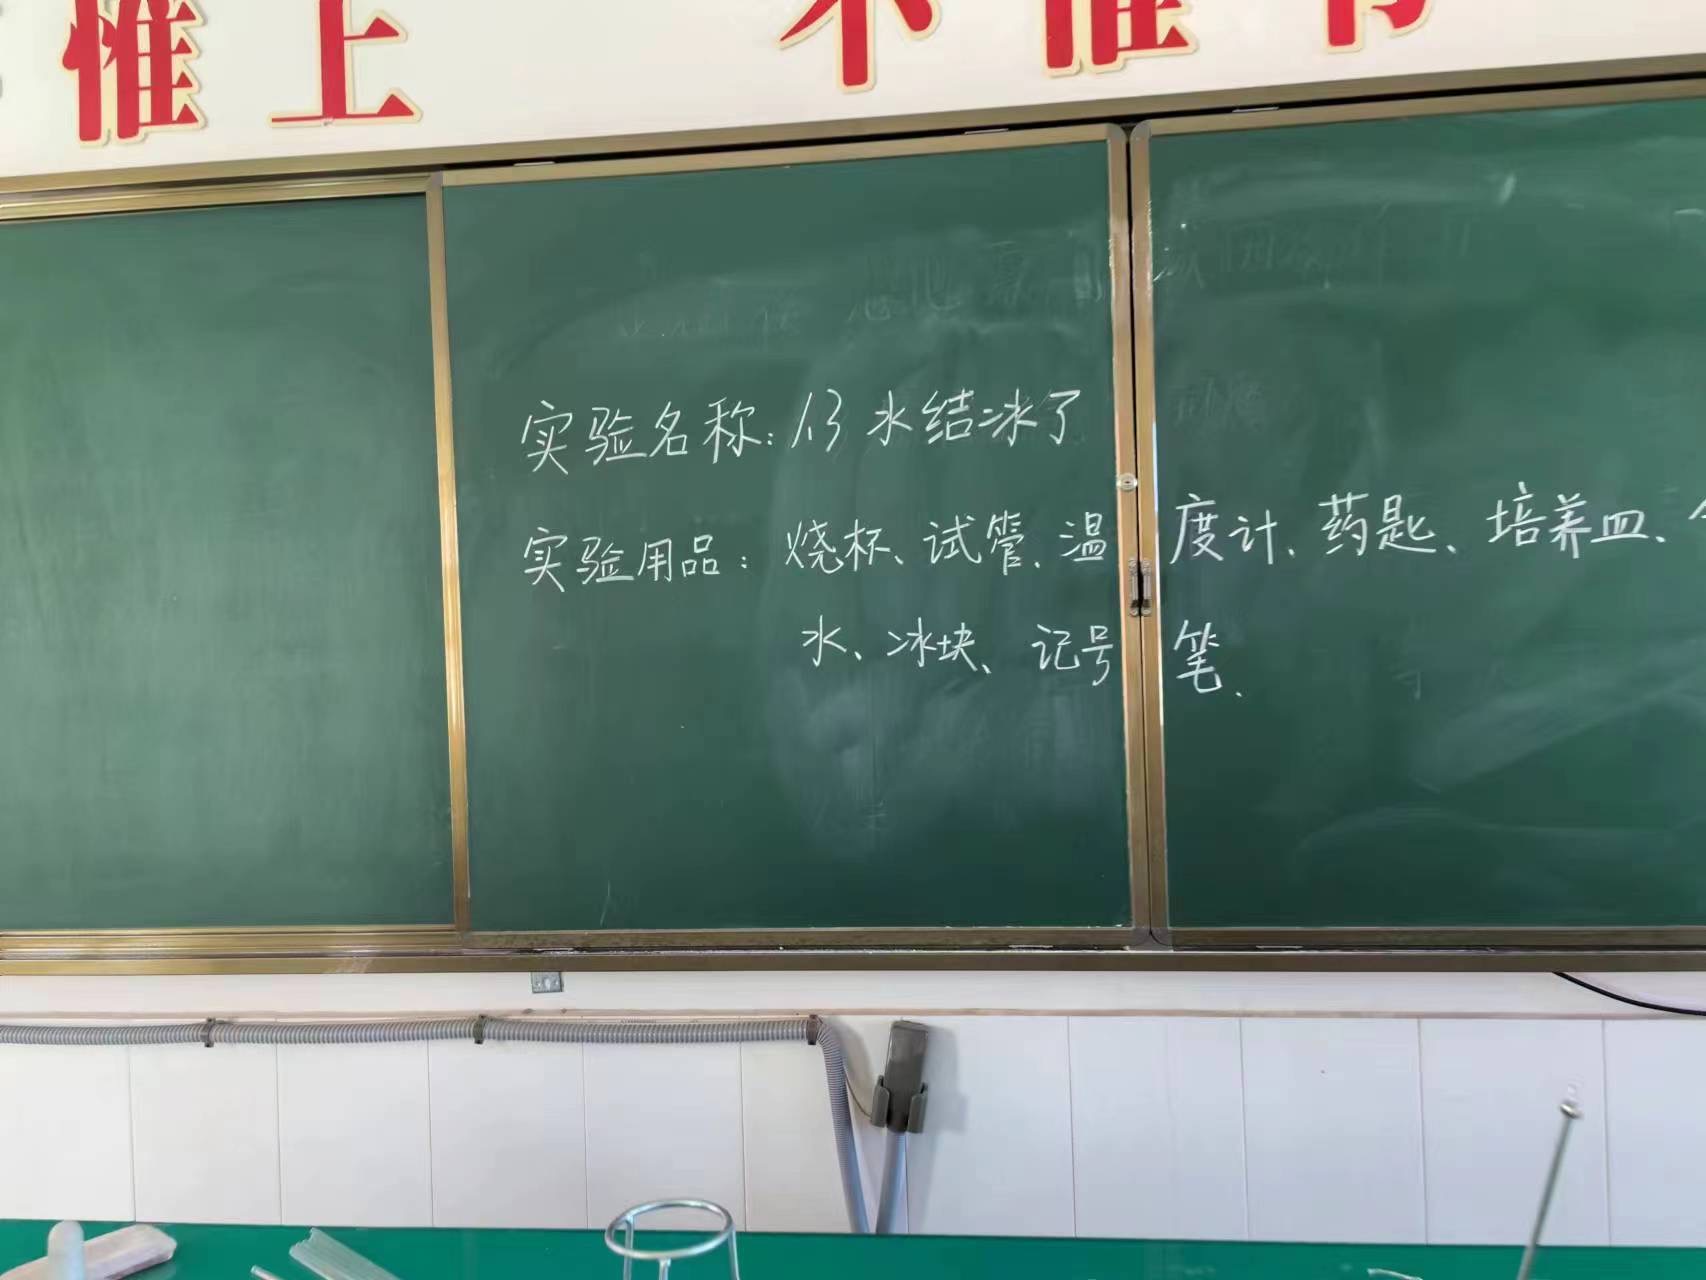 惟上 不惟
实验名称：1.3 水结冰了
实验用品：烧杯、试管、温度计、药匙、培养皿、
水、冰块、记号笔.